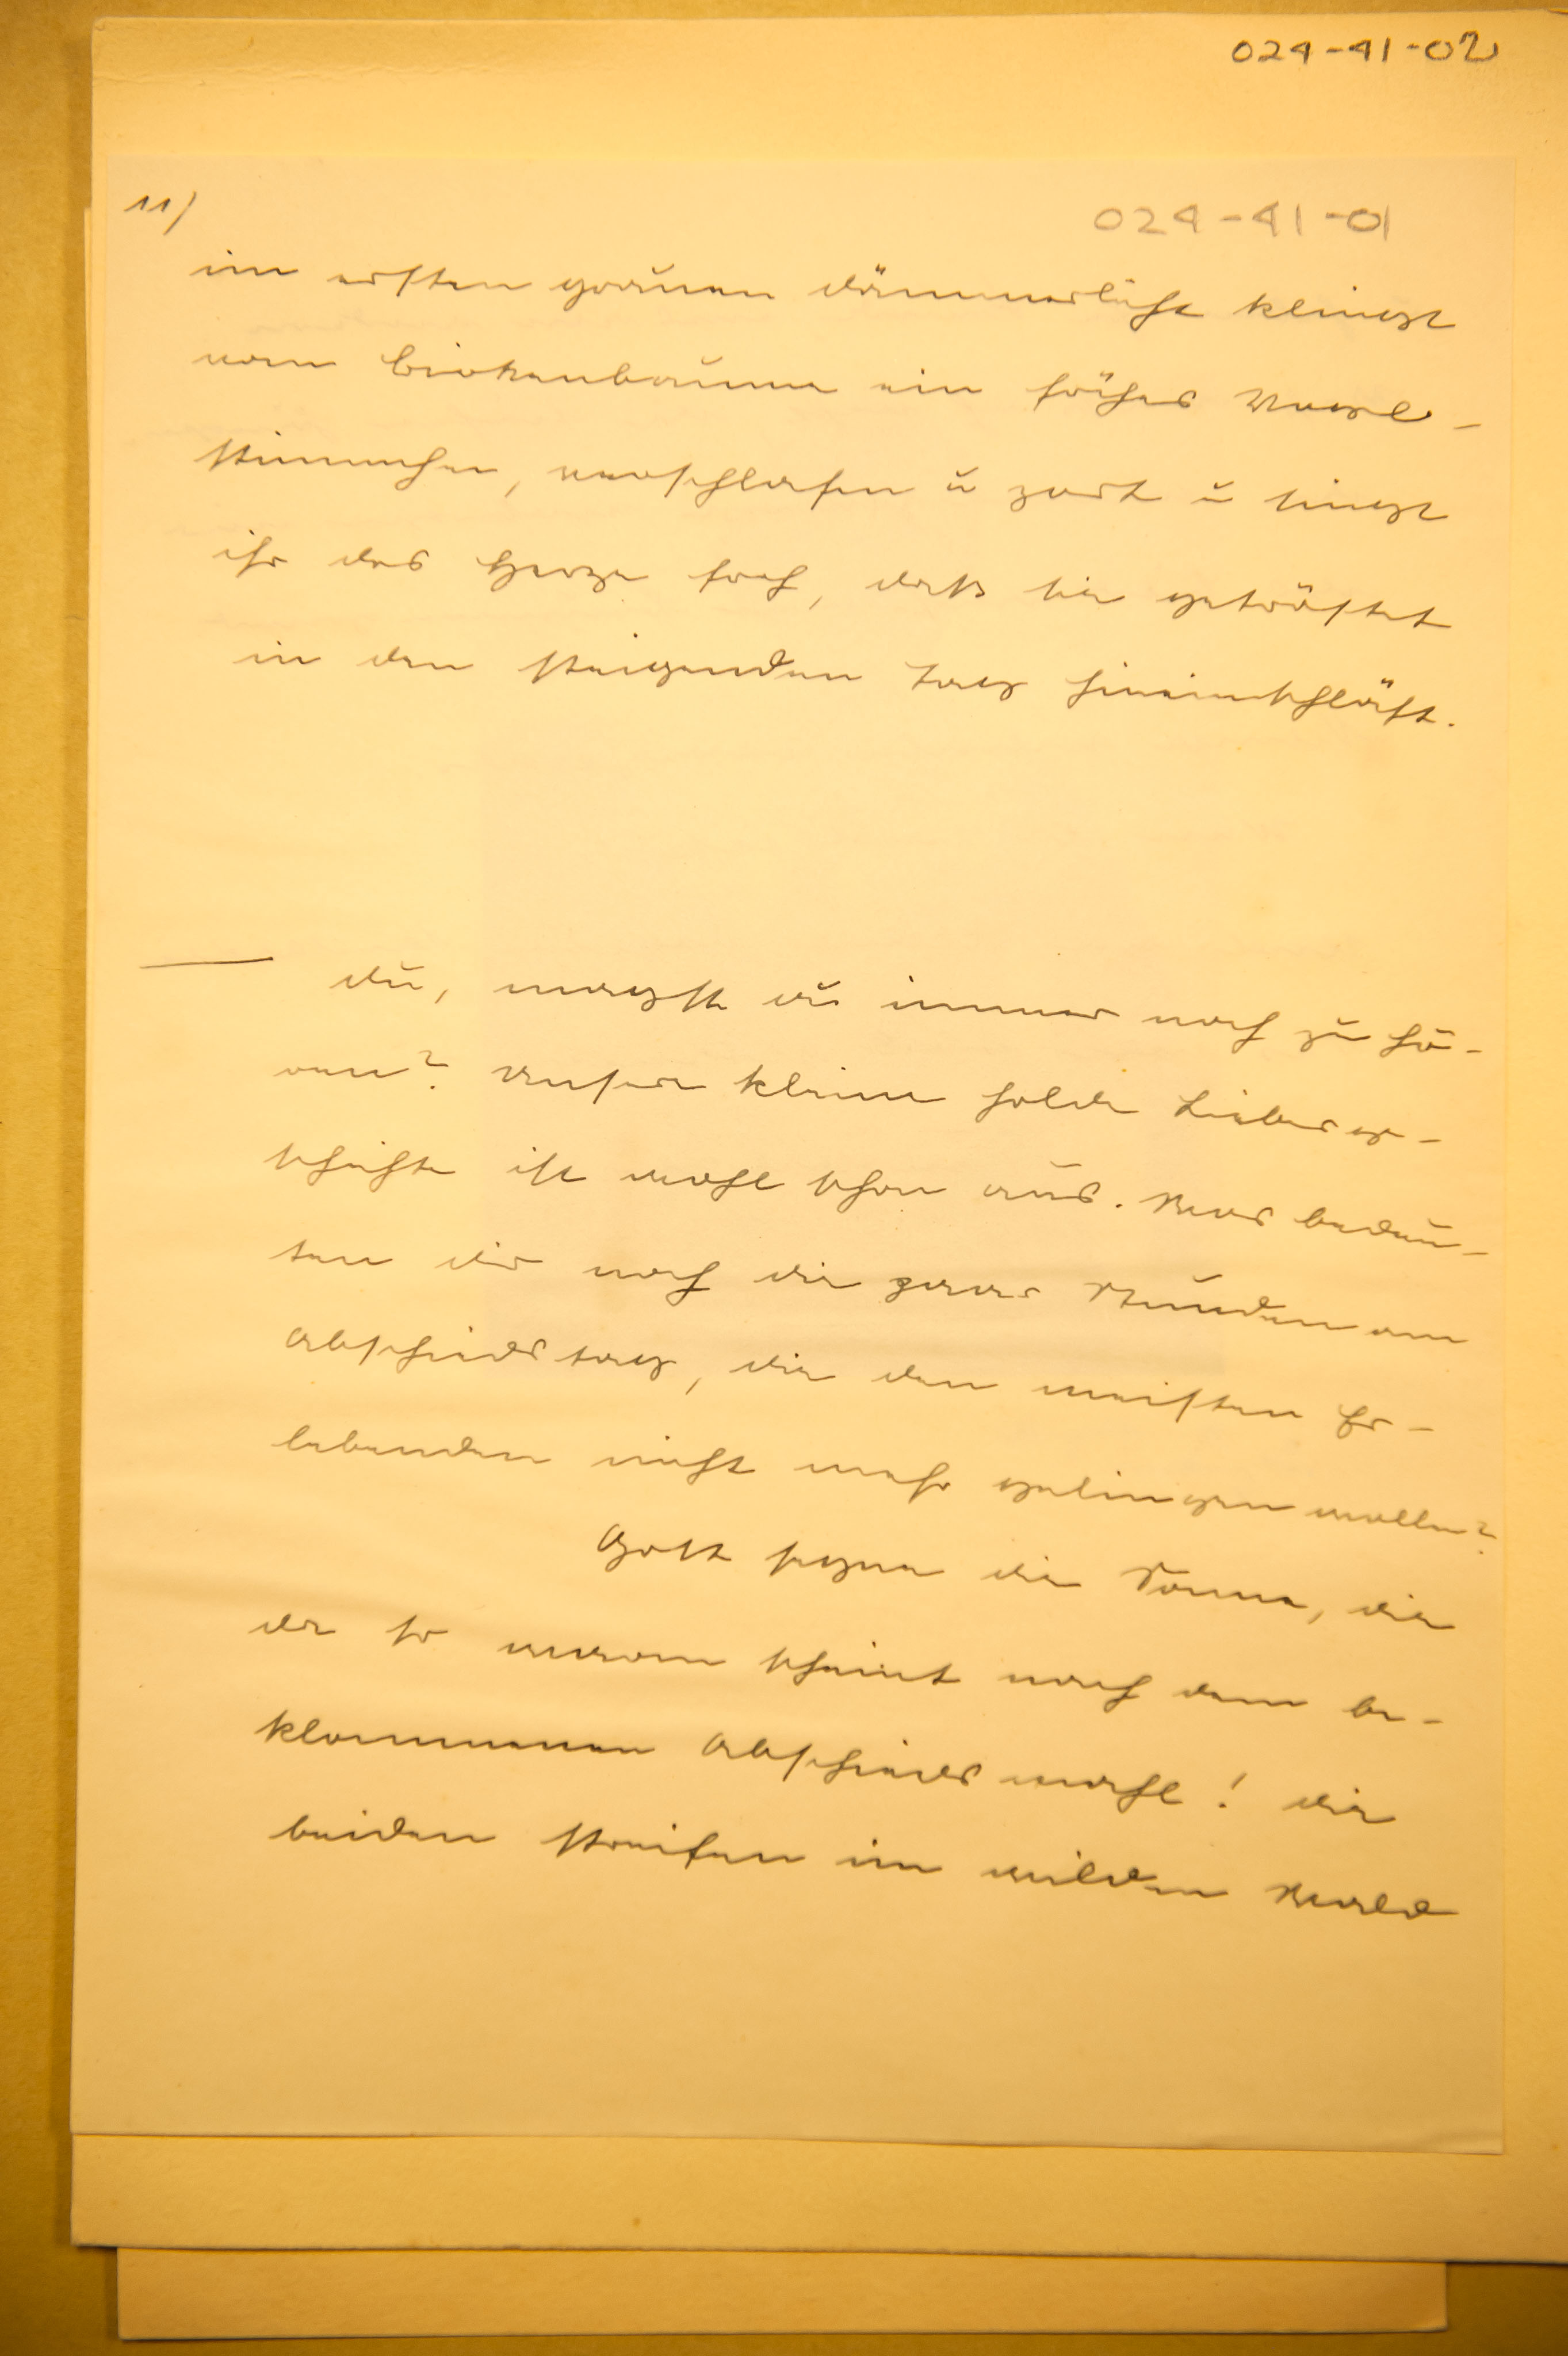 024-41-02
11)
024-41-01
im ersten grauen dämmerlicht klingt
vom birkenbaume ein frühes Vogel-
stimmchen, verschlafen u zart u singt
ihr das Herze froh, daß sie getröstet
in den steigenden Tag hineinschläft.
du, magst du immer noch zu hö-
ren? unsere kleine holde Liebesge-
schichte ist wohl schon aus. Was bedeu-
ten dir noch die Stunden am
abschiedstag, die den meisten Er-
lebenden nicht mehr gelingen wollen?
Gott segne die Sonne, die
da so warm scheint nach dem be-
klommenen abschiedsmahl! die
beiden streifen im wilden Wald